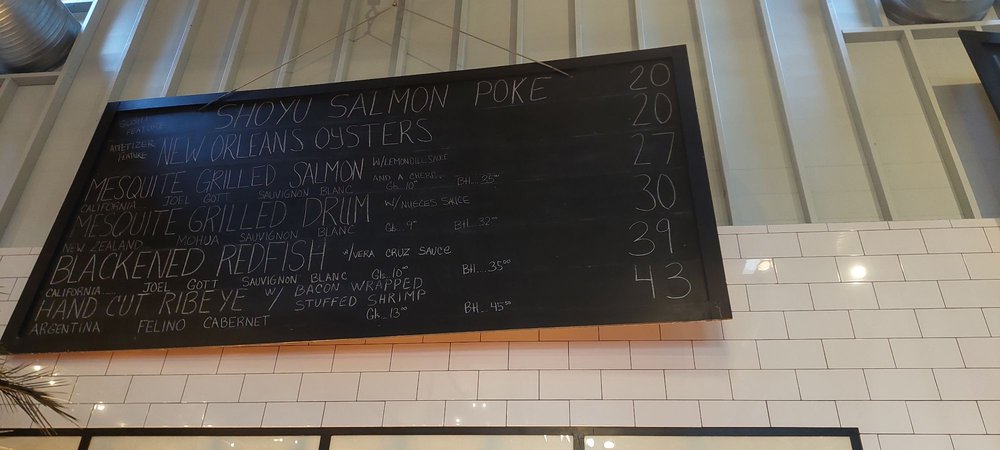 SUSHI FEATURE SHOYU SALMON POKE 20
APPETIZER FEATURE NEW ORLEANS OYSTERS 20
MESQUITE GRILLED SALMON W/LEMON DILL SAUCE 27
CALIFORNIA JOEL GOTT SAUVIGNON BLANC GL..10⁰⁰ BH....35⁰⁰
MESQUITE GRILLED DRUM W/NUECES SAUCE 30
NEW ZEALAND MOHUA SAUVIGNON BLANC GL..9⁰⁰ BH...32⁰⁰
BLACKENED REDFISH W/VERA CRUZ SAUCE 39
CALIFORNIA.... JOEL GOTT SAUVIGNON BLANC GL..10⁰⁰ BH....35⁰⁰
HAND CUT RIBEYE W/ BACON WRAPPED STUFFED SHRIMP 43
ARGENTINA FELINO CABERNET GL...13⁰⁰ BH...45⁰⁰